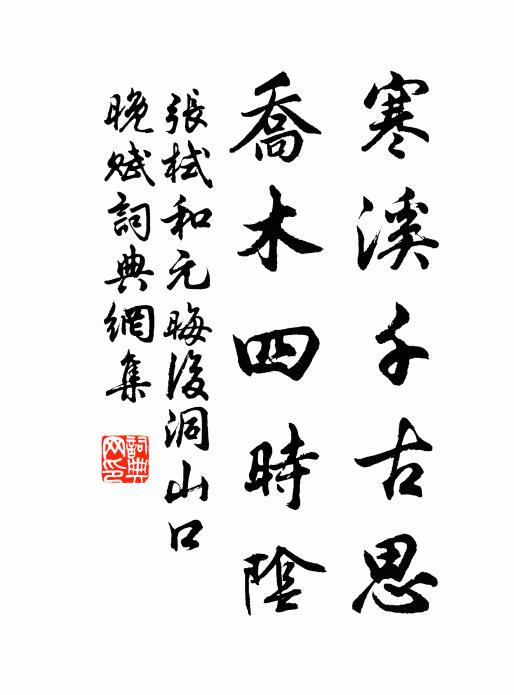 寒溪千古思
喬木四時陰
張栻和元晦後洞山口
晚賦詞典網集
詞典网印